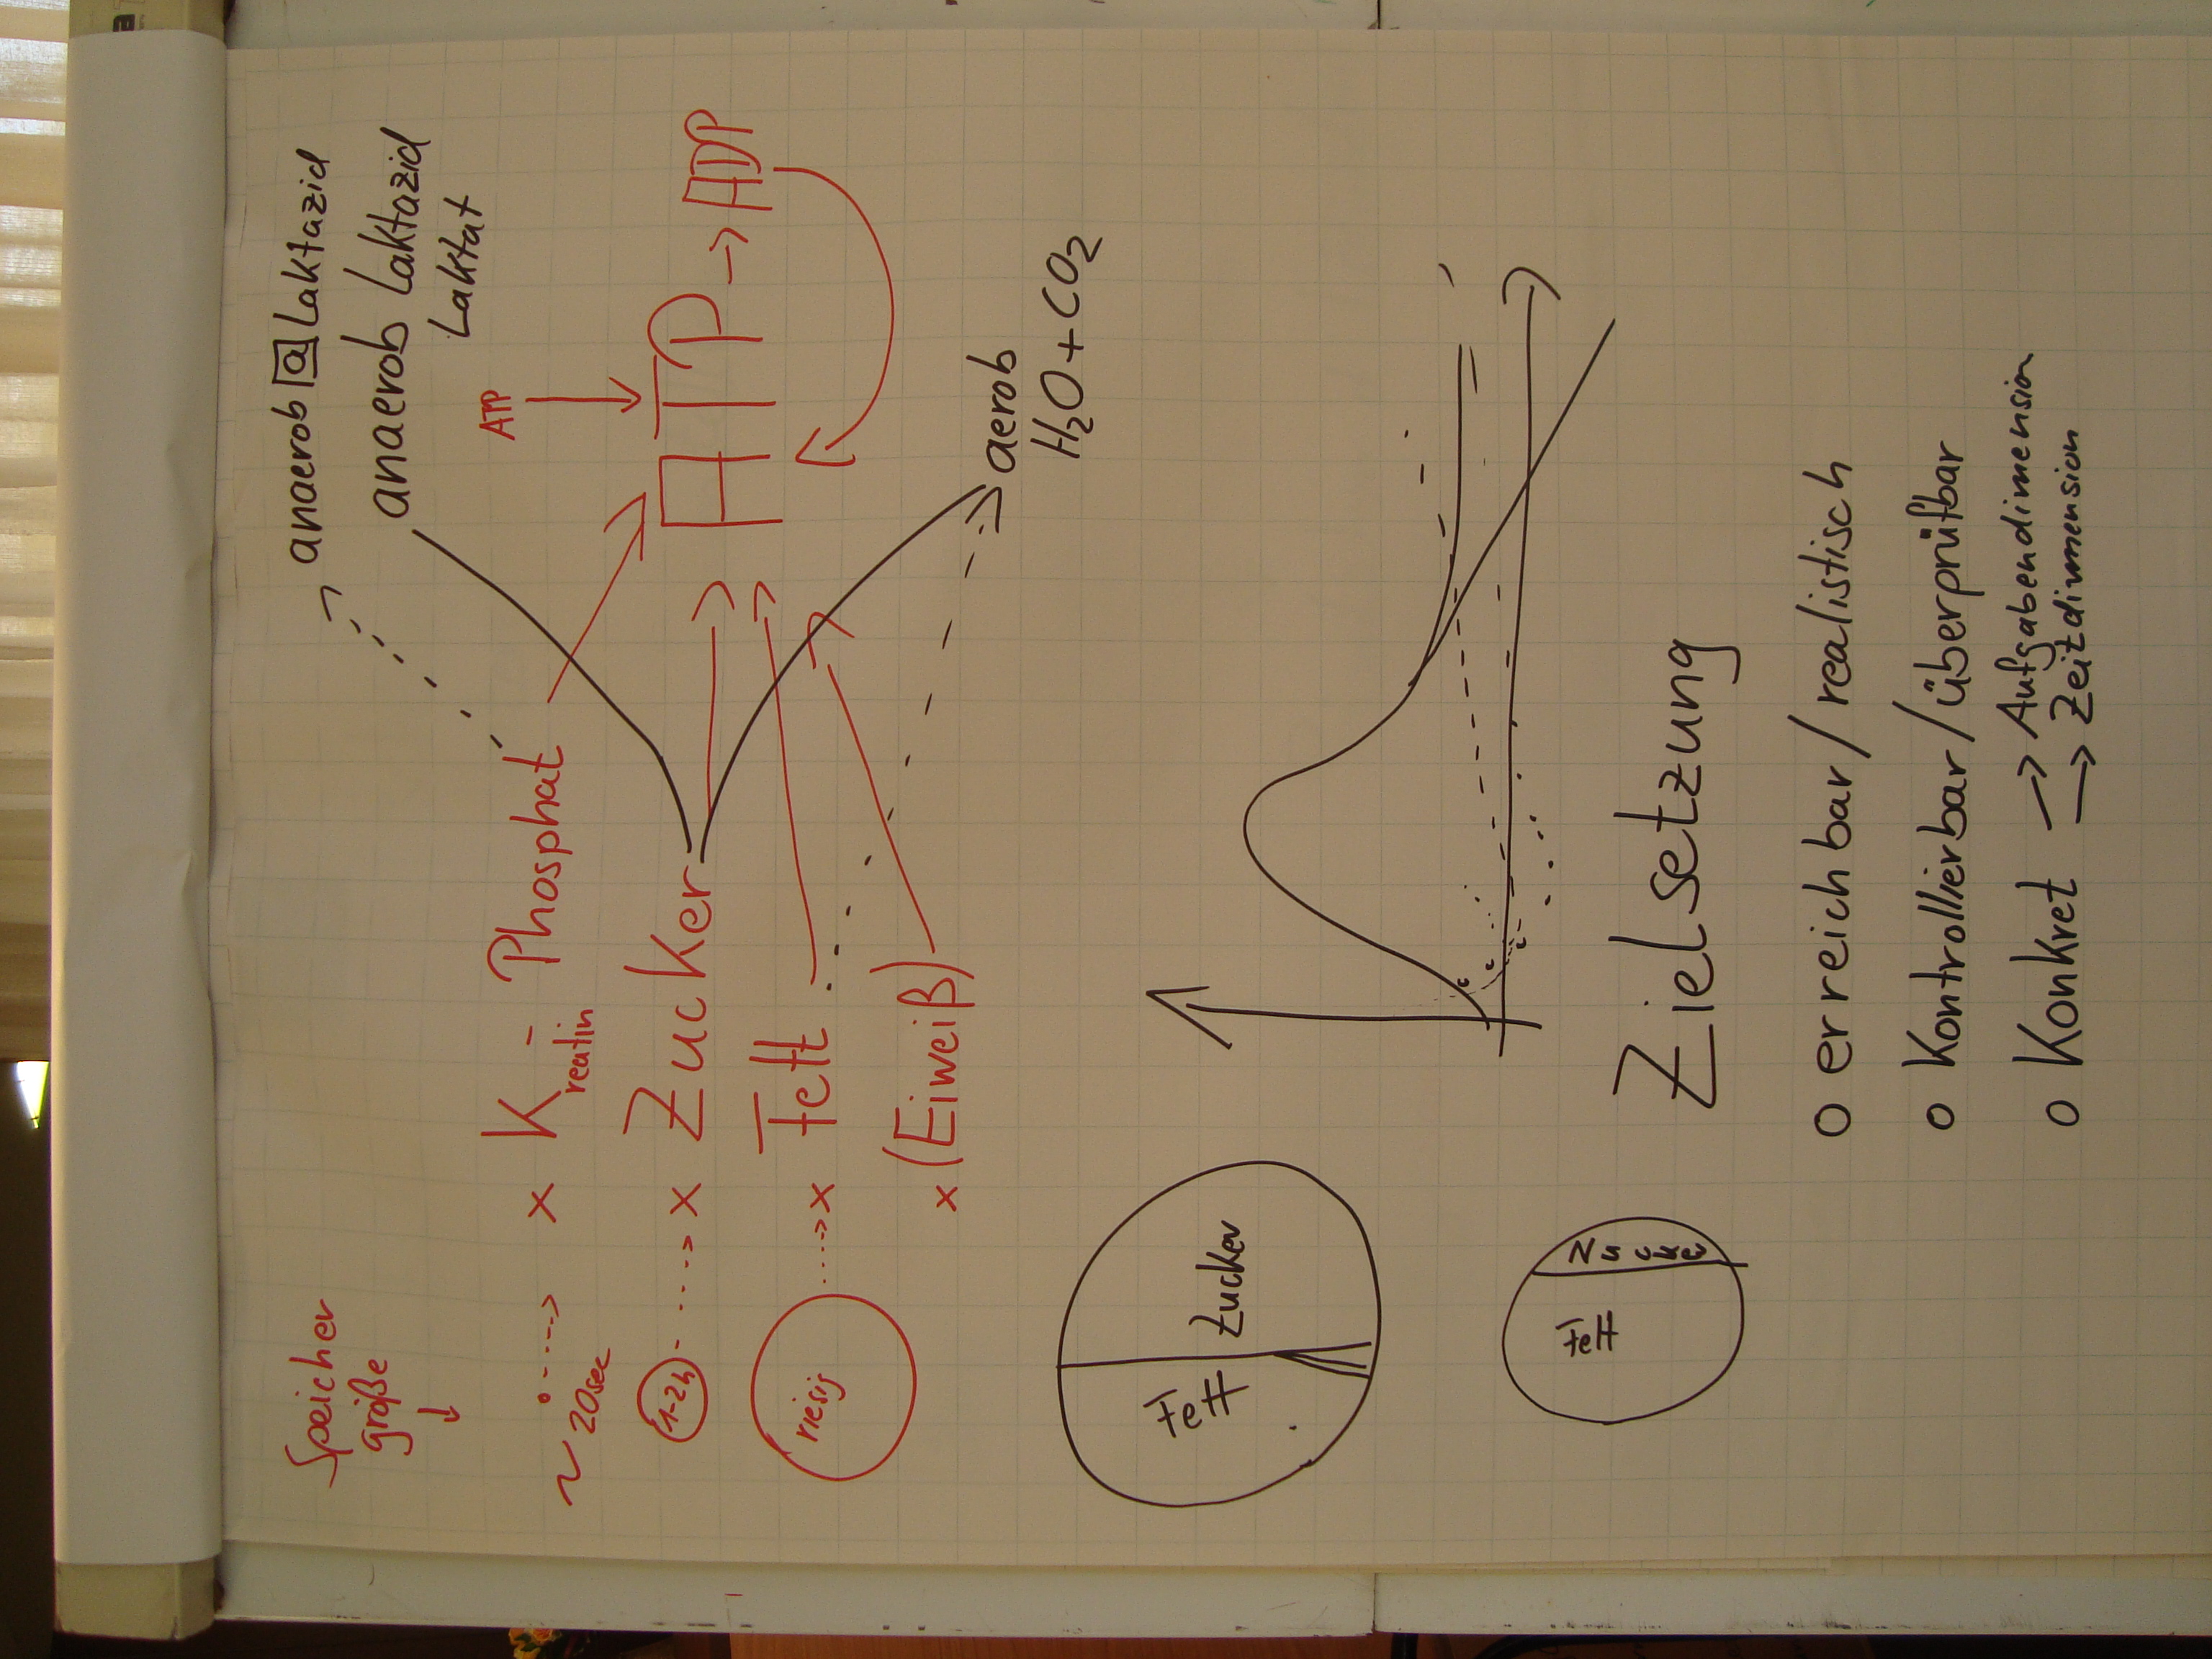 Speicher
größe
anaerob a Laktazid
anaerob Laktazid
Laktat
ATP
~ 20sec
x Kreatin - Phosphat
1-2h
x Zucker
ATP → ADP
riesig
x Fett
x (Eiweiß)
aerob
H₂O + CO₂
Fett
Zucker
Fett
Zucker
Zielsetzung
o erreichbar / realistisch
o Kontrollierbar / überprüfbar
o Konkret → Aufgabendimension
→ Zeitdimension